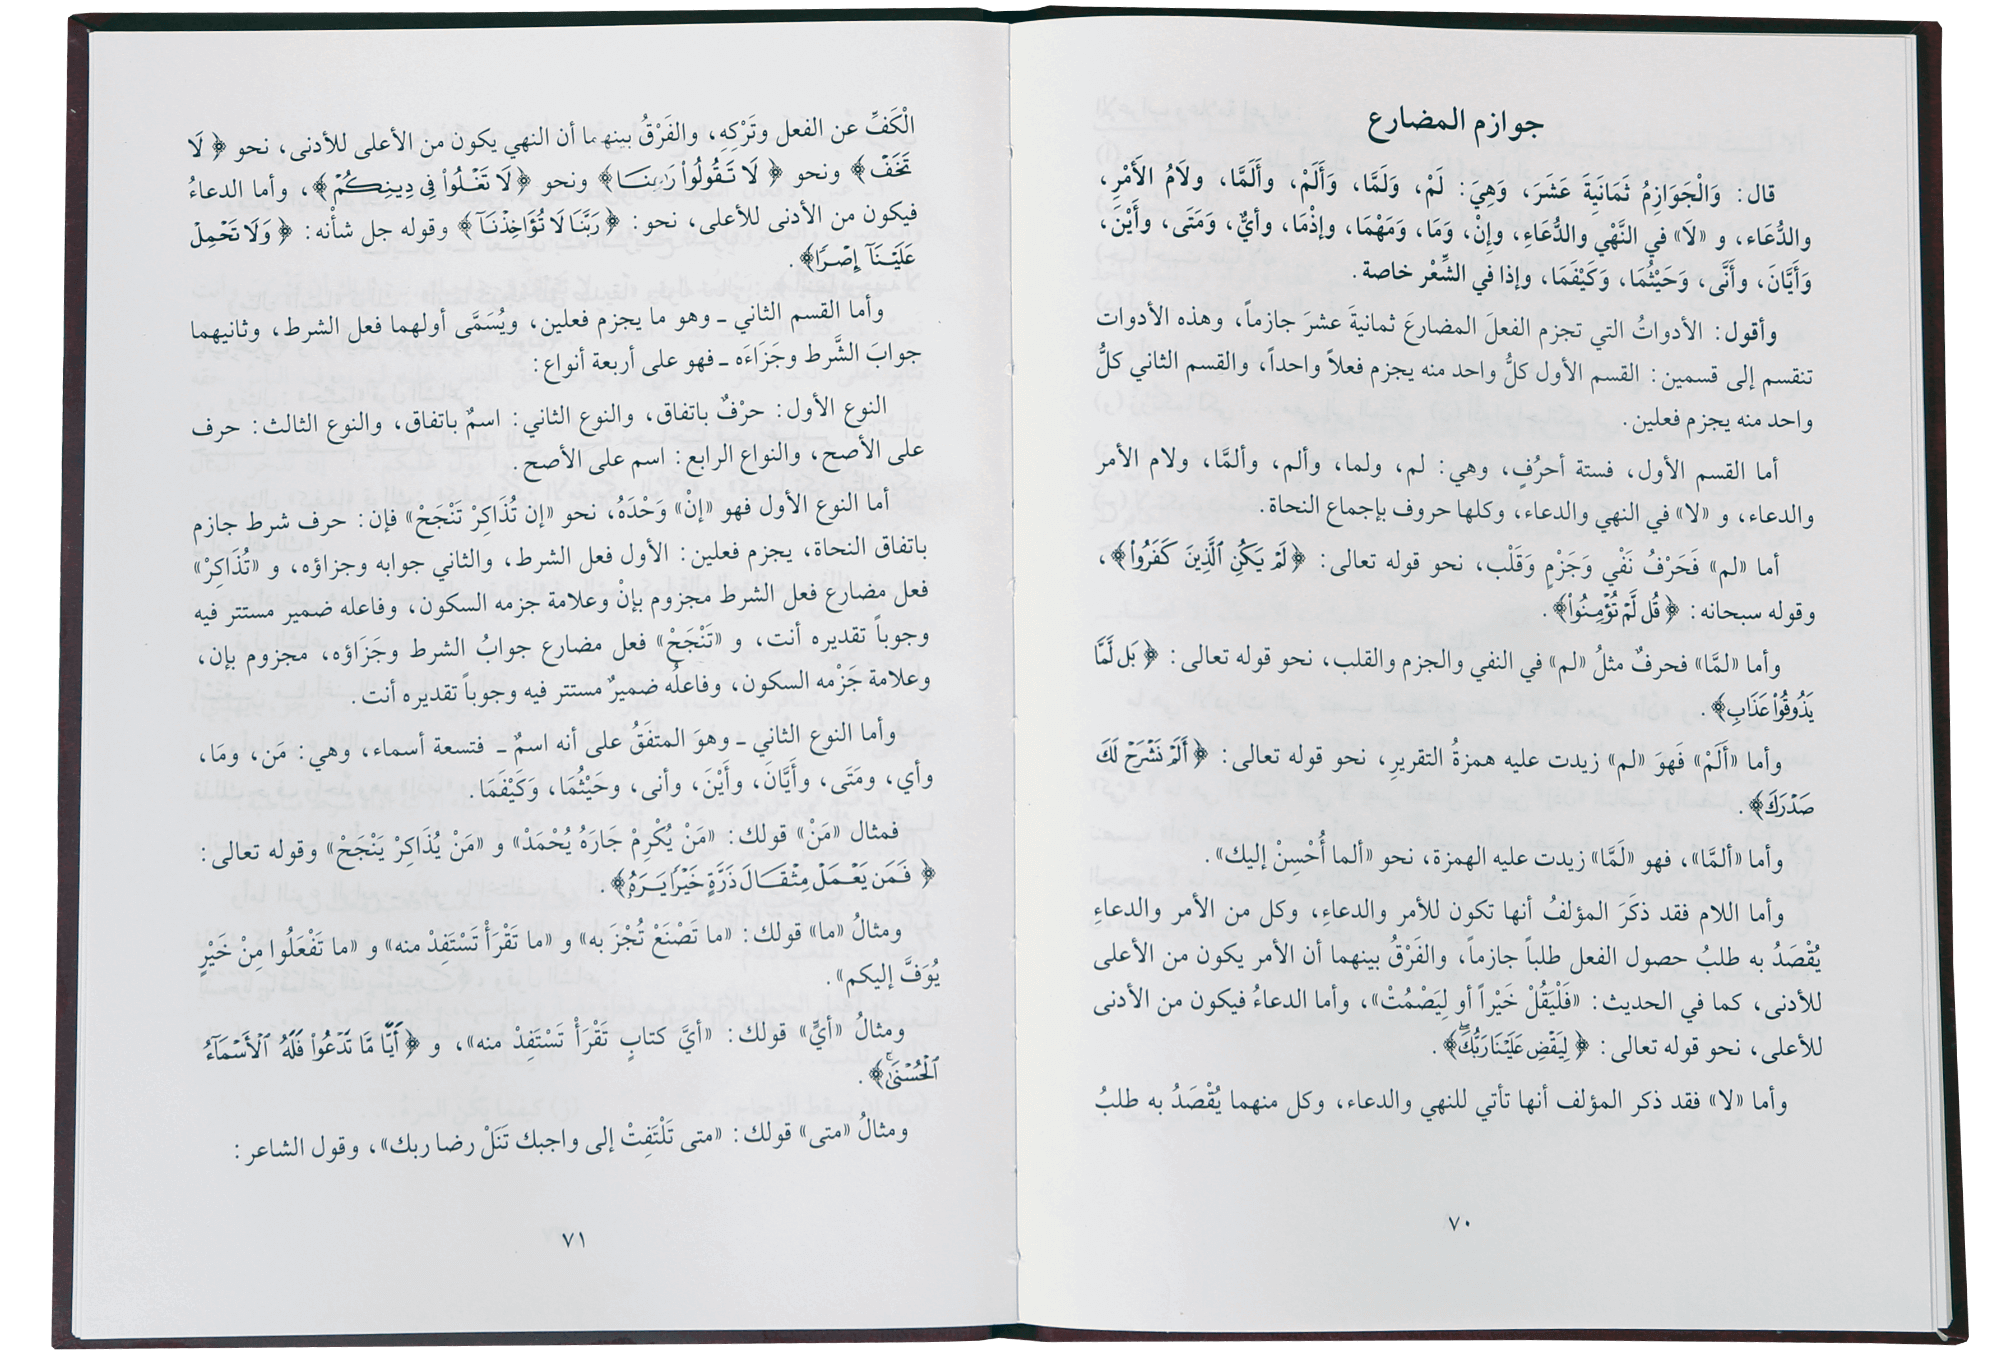 جوازم المضارع
قال: وَالْجَوَازِمُ ثَمَانِيَةَ عَشَرَ، وَهِيَ: لَمْ، وَلَمَّا، وَأَلَمْ، وأَلَمَّا، ولَامُ الأَمْرِ،
والدُّعَاء، و «لَا» في النَّهْي والدُّعَاءِ، وإنْ، وَمَا، وَمَهْمَا، وإذْمَا، وأيٌّ، وَمَتَى، وأَيْنَ،
وَأَيَّانَ، وأَنَّى، وَحَيْثُمَا، وَكَيْفَمَا، وإذا في الشِّعْر خاصة.
وأقول: الأدواتُ التي تجزم الفعلَ المضارعَ ثمانيةَ عشرَ جازماً، وهذه الأدوات
تنقسم إلى قسمين: القسم الأول كلُّ واحد منه يجزم فعلاً واحداً، والقسم الثاني كلُّ
واحد منه يجزم فعلين.
أما القسم الأول، فستة أحرُفٍ، وهي: لم، ولما، وألم، وألمَّا، ولام الأمر
والدعاء، و «لا» في النهي والدعاء، وكلها حروف بإجماع النحاة.
أما «لم» فَحَرْفُ نَفْي وَجَزْمٍ وَقَلْب، نحو قوله تعالى: ﴿لَمْ يَكُنِ ٱلَّذِينَ كَفَرُوا۟﴾،
وقوله سبحانه: ﴿قُل لَّمْ تُؤْمِنُوا۟﴾.
وأما «لمَّا» فحرفٌ مثلُ «لم» في النفي والجزم والقلب، نحو قوله تعالى: ﴿بَل لَّمَّا
يَذُوقُوا۟ عَذَابِ﴾.
وأما «أَلَمْ» فَهوَ «لم» زيدت عليه همزةُ التقريرِ، نحو قوله تعالى: ﴿أَلَمْ نَشْرَحْ لَكَ
صَدْرَكَ﴾.
وأما «ألمَّا»، فهو «لَمَّا» زيدت عليه الهمزة، نحو «ألما أُحْسِنْ إليك».
وأما اللام فقد ذكَرَ المؤلفُ أنها تكون للأمر والدعاءِ، وكل من الأمر والدعاءِ
يُقْصَدُ به طلبُ حصول الفعل طلباً جازماً، والفَرْقُ بينهما أن الأمر يكون من الأعلى
للأدنى، كما في الحديث: «فَلْيَقُلْ خَيْراً أو لِيَصْمُتْ»، وأما الدعاءُ فيكون من الأدنى
للأعلى، نحو قوله تعالى: ﴿لِيَقْضِ عَلَيْنَا رَبُّكَ﴾.
وأما «لا» فقد ذكر المؤلف أنها تأتي للنهي والدعاء، وكل منهما يُقْصَدُ به طلبُ
٧٠
الْكَفِّ عن الفعل وتَرْكِهِ، والفَرْقُ بينهما أن النهي يكون من الأعلى للأدنى، نحو ﴿لَا
تَخَفْ﴾ ونحو ﴿لَا تَقُولُوا۟ رَٰعِنَا﴾ ونحو ﴿لَا تَغْلُوا۟ فِى دِينِكُمْ﴾، وأما الدعاءُ
فيكون من الأدنى للأعلى، نحو: ﴿رَبَّنَا لَا تُؤَاخِذْنَآ﴾ وقوله جل شأنه: ﴿وَلَا تَحْمِلْ
عَلَيْنَآ إِصْرًا﴾.
وأما القسم الثاني ـ وهو ما يجزم فعلين، ويُسَمَّى أولهما فعل الشرط، وثانيهما
جوابَ الشَّرط وجَزَاءَه ـ فهو على أربعة أنواع:
النوع الأول: حرْفٌ باتفاق، والنوع الثاني: اسمٌ باتفاق، والنوع الثالث: حرف
على الأصح، والنواع الرابع: اسم على الأصح.
أما النوع الأول فهو «إنْ» وَحْدَهُ، نحو «إن تُذَاكِرْ تَنْجَحْ» فإن: حرف شرط جازم
باتفاق النحاة، يجزم فعلين: الأول فعل الشرط، والثاني جوابه وجزاؤه، و «تُذَاكِرْ»
فعل مضارع فعل الشرط مجزوم بإنْ وعلامة جزمه السكون، وفاعله ضمير مستتر فيه
وجوباً تقديره أنت، و «تَنْجَحْ» فعل مضارع جوابُ الشرط وجَزَاؤه، مجزوم بإن،
وعلامة جَزْمه السكون، وفاعلُه ضميرٌ مستتر فيه وجوباً تقديره أنت.
وأما النوع الثاني ـ وهوَ المتفَقُ على أنه اسمٌ ـ فتسعة أسماء، وهي: مَن، ومَا،
وأي، ومَتَى، وأَيَّانَ، وأَيْنَ، وأنى، وحَيْثُمَا، وَكَيْفَمَا.
فمثال «مَنْ» قولك: «مَنْ يُكْرِمْ جَارَهُ يُحْمَدْ» و «مَنْ يُذَاكِرْ يَنْجَحْ» وقوله تعالى:
﴿فَمَن يَعْمَلْ مِثْقَالَ ذَرَّةٍ خَيْرًا يَرَهُۥ﴾.
ومثالُ «ما» قولك: «ما تَصْنَعْ تُجْزَ به» و «ما تَقْرَأْ تَسْتَفِدْ منه» و «ما تَفْعَلُوا مِنْ خَيْرٍ
يُوَفَّ إليكم».
ومثالُ «أيٍّ» قولك: «أيَّ كتابٍ تَقْرَأْ تَسْتَفِدْ منه»، و ﴿أَيًّا مَّا تَدْعُوا۟ فَلَهُ ٱلْأَسْمَآءُ
ٱلْحُسْنَىٰ﴾.
ومثالُ «متى» قولك: «متى تَلْتَفِتْ إلى واجبك تَنَلْ رضا ربك»، وقول الشاعر:
٧١